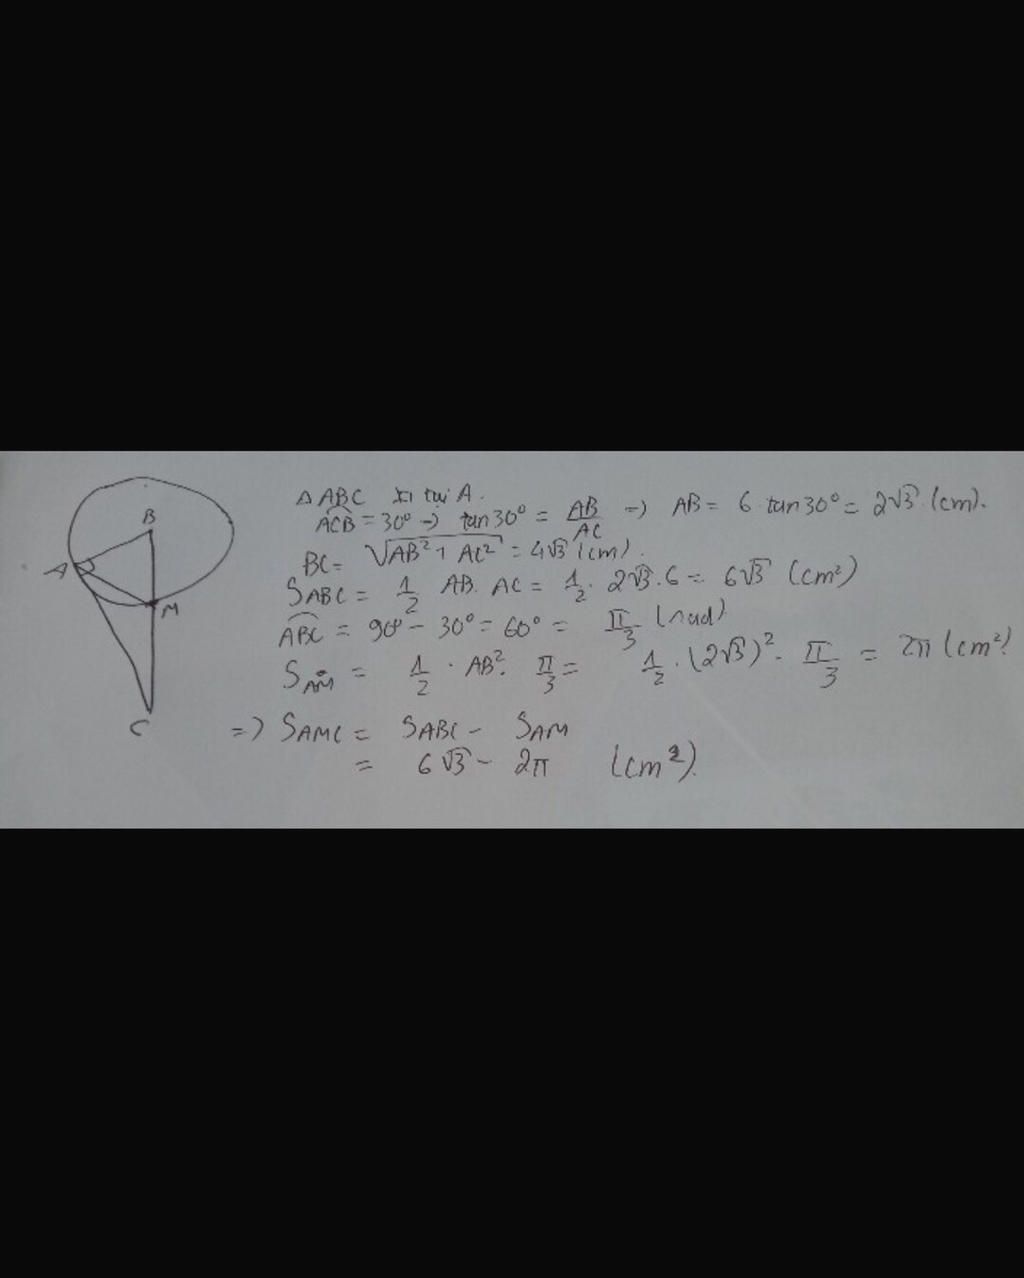 B
A
M
C
△ABC tại A.
ACB = 30° → tan30° = AB/AC => AB = 6 tan30° = 2√3 (cm).
BC = √(AB² + AC²) = 4√3 (cm).
SABC = 1/2 AB. AC = 1/2 . 2√3 . 6 = 6√3 (cm²)
ABC = 90° - 30° = 60° = π/3 (rad)
SAM = 1/2 . AB² . π/3 = 1/2 . (2√3)² . π/3 = 2π (cm²)
=> SAMC = SABC - SAM
= 6√3 - 2π (cm²).